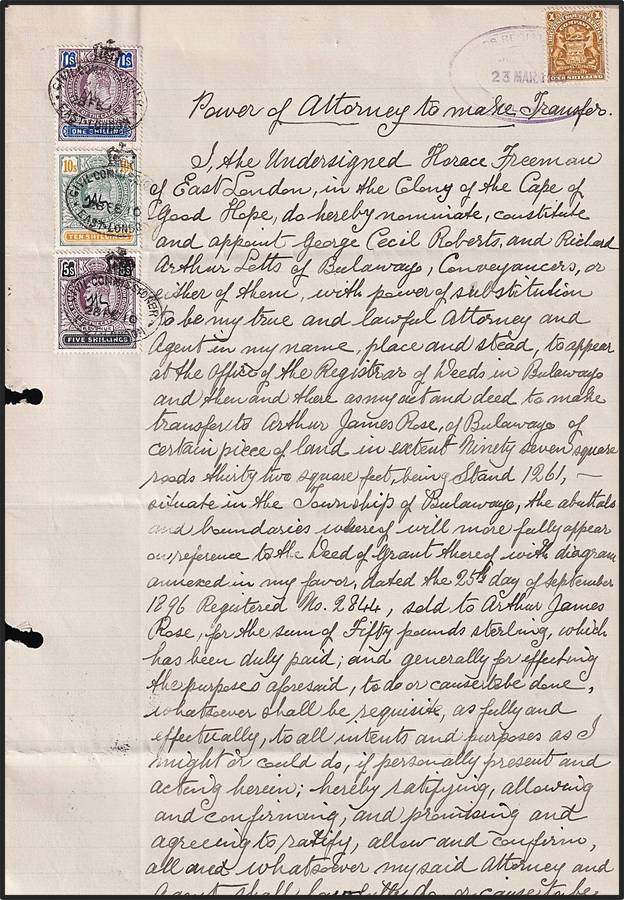 DS REGIST
23 MAR 1
COMPANY
ONE SHILLING
1s 1s
ONE SHILLING
CIVIL COMMISSIONER
EAST LONDON
10s
TEN SHILLINGS
CIVIL COMMISSIONER
EAST LONDO
5s 5s
FIVE SHILLINGS
CIVIL COMMISSIONER
Power of Attorney to make Transfer.
I, the Undersigned Horace Freeman
of East London, in the Colony of the Cape of
Good Hope, do hereby nominate, constitute
and appoint George Cecil Roberts, and Richard
Arthur Letts of Bulawayo, Conveyancers, or
either of them, with power of substitution
to be my true and lawful Attorney and
Agent in my name, place and stead, to appear
at the Office of the Registrar of Deeds in Bulawayo
and then and there as my act and deed to make
transfer to Arthur James Rose, of Bulawayo of
certain piece of land in extent Ninety seven square
roods thirty two square feet, being Stand 1261, –
situate in the Township of Bulawayo, the abuttals
and boundaries whereof will more fully appear
on reference to the Deed of Grant thereof with diagram
annexed in my favor, dated the 25th day of September
1896 Registered No. 2844, sold to Arthur James
Rose, for the sum of Fifty pounds sterling, which
has been duly paid; and generally for effecting
the purposes aforesaid, to do or cause to be done,
whatsoever shall be requisite, as fully and
effectually, to all intents and purposes as I
might or could do, if personally present and
acting herein; hereby ratifying, allowing
and confirming, and promising and
agreeing to ratify, allow and confirm,
all and whatsoever my said Attorney and
Agent shall lawfully do or cause to be